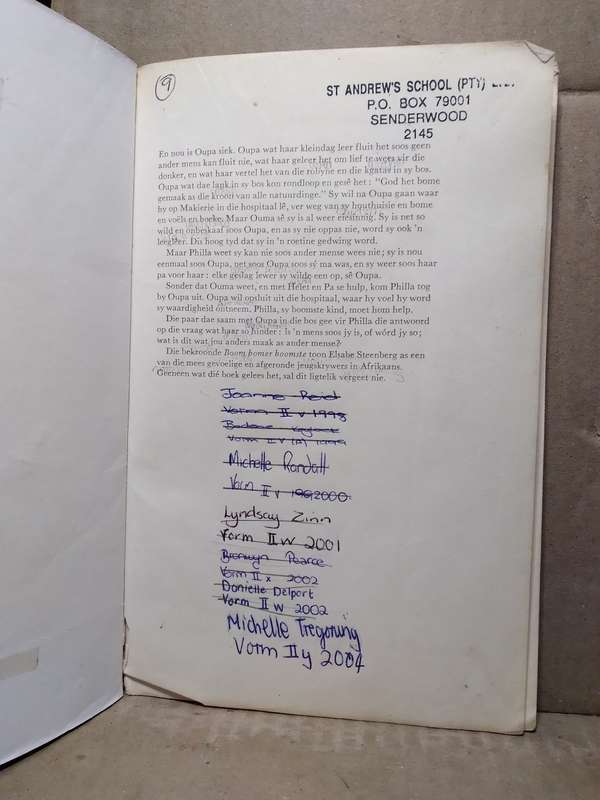 9
ST ANDREW'S SCHOOL (PTY)
P.O. BOX 79001
SENDERWOOD
2145
En nou is Oupa siek. Oupa wat haar kleindag leer fluit het soos geen
ander mens kan fluit nie, wat haar geleer het om lief te wees vir die
donker, en wat haar vertel het van die robyne en die agate in sy bos.
Oupa wat dae lank in sy bos kon rondloop en gesê het: “God het bome
gemaak as die kroon van alle natuurdinge.” Sy wil na Oupa gaan waar
hy op Makierie in die hospitaal lê, ver weg van sy houthuisie en bome
en voëls en boeke. Maar Ouma sê sy is al weer eiesinnig. Sy is net so
wild en onbeskaaf soos Oupa, en as sy nie oppas nie, word sy ook 'n
leegleêr. Dis hoog tyd dat sy in 'n roetine gedwing word.
Maar Philla weet sy kan nie soos ander mense wees nie; sy is nou
eenmaal soos Oupa, net soos Oupa soos sý ma was, en sy weer soos haar
pa voor haar: elke geslag lewer sy wilde een op, sê Oupa.
Sonder dat Ouma weet, en met Helet en Pa se hulp, kom Philla tog
by Oupa uit. Oupa wil opsluit uit die hospitaal, waar hy voel hy word
sy waardigheid ontneem. Philla, sy boomste kind, moet hom help.
Die paar dae saam met Oupa in die bos gee vir Philla die antwoord
op die vraag wat haar so hinder: Is 'n mens soos jy is, of wórd jy so;
wat is dit wat jou anders maak as ander mense?
Die bekroonde Boom bomer boomste toon Elsabe Steenberg as een
van die mees gevoelige en afgeronde jeugskrywers in Afrikaans.
Geeneen wat dié boek gelees het, sal dit ligtelik vergeet nie.
Joanne Reid
Vorm II v 1998
Vorm II 1999
Michelle Randall
Vorm II v 2000
Lyndsay Zinn
Vorm II W 2001
Bronwyn Pearce
Vorm II x 2002
Danielle Delport
Vorm II W 2002
Michelle Tregoning
Vorm II y 2004